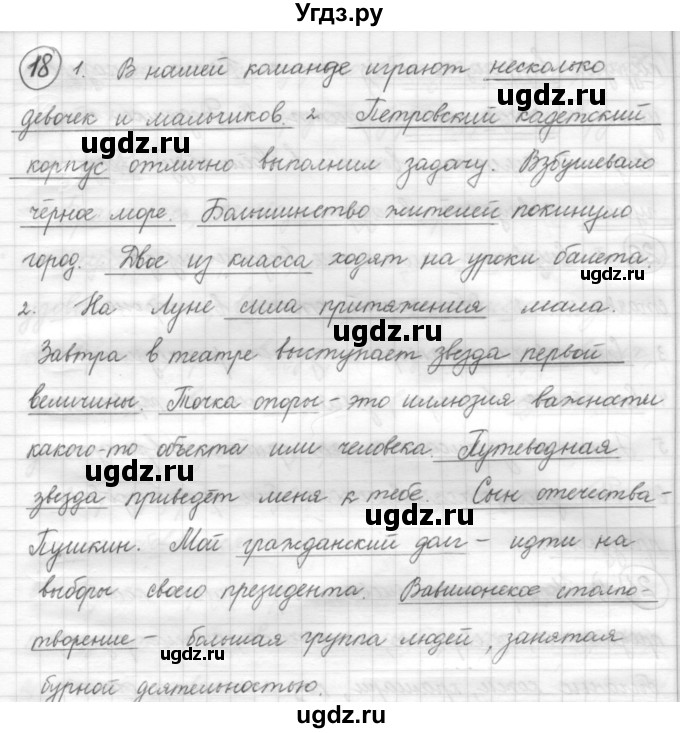 Угдз.ру
18 1. В нашей команде играют несколько
девочек и мальчиков. 2. Петровский кадетский
gdz.ru
корпус отлично выполнил задачу. Взбушевало
чёрное море. Большинство жителей покинуло
ugdz.ru
город. Двое из класса ходят на уроки балета.
ugdz.ru
2. На Луне сила притяжения мала.
ugdz.ru
Завтра в театре выступает звезда первой
величины. Точка опоры – это иллюзия важности
какого-то объекта или человека. Путеводная
ugdz.ru
звезда приведёт меня к тебе. Сын отечества –
ugdz.ru
Пушкин. Мой гражданский долг – идти на
выборы своего президента. Вавилонское столпо-
творение – большая группа людей, занятая
ugdz.ru
бурной деятельностью.
ugdz.ru
ugdz.ru